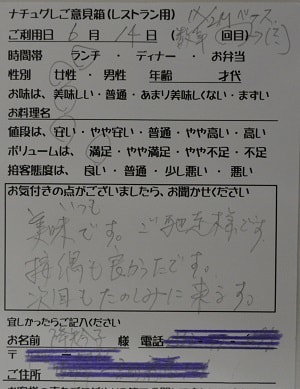 ナチュグしご意見箱(レストラン用)
ご利用日 6 月 14 日 ( 数年 回目)
時間帯 ランチ ・ ディナー ・ お弁当
性別 女性 ・ 男性 年齢 才代
お味は、美味しい・普通・あまり美味しくない・まずい
お料理名
値段は、安い・やや安い・普通・やや高い・高い
ボリュームは、満足・やや満足・やや不足・不足
接客態度は、良い・普通・少し悪い・悪い
お気付きの点がございましたら、お聞かせください
いつも
美味です。ご馳走様です
接偶も良かったです。
次回もたのしみに来ます。
宜しかったらご記入ください
お名前 様 電話
〒
ご住所